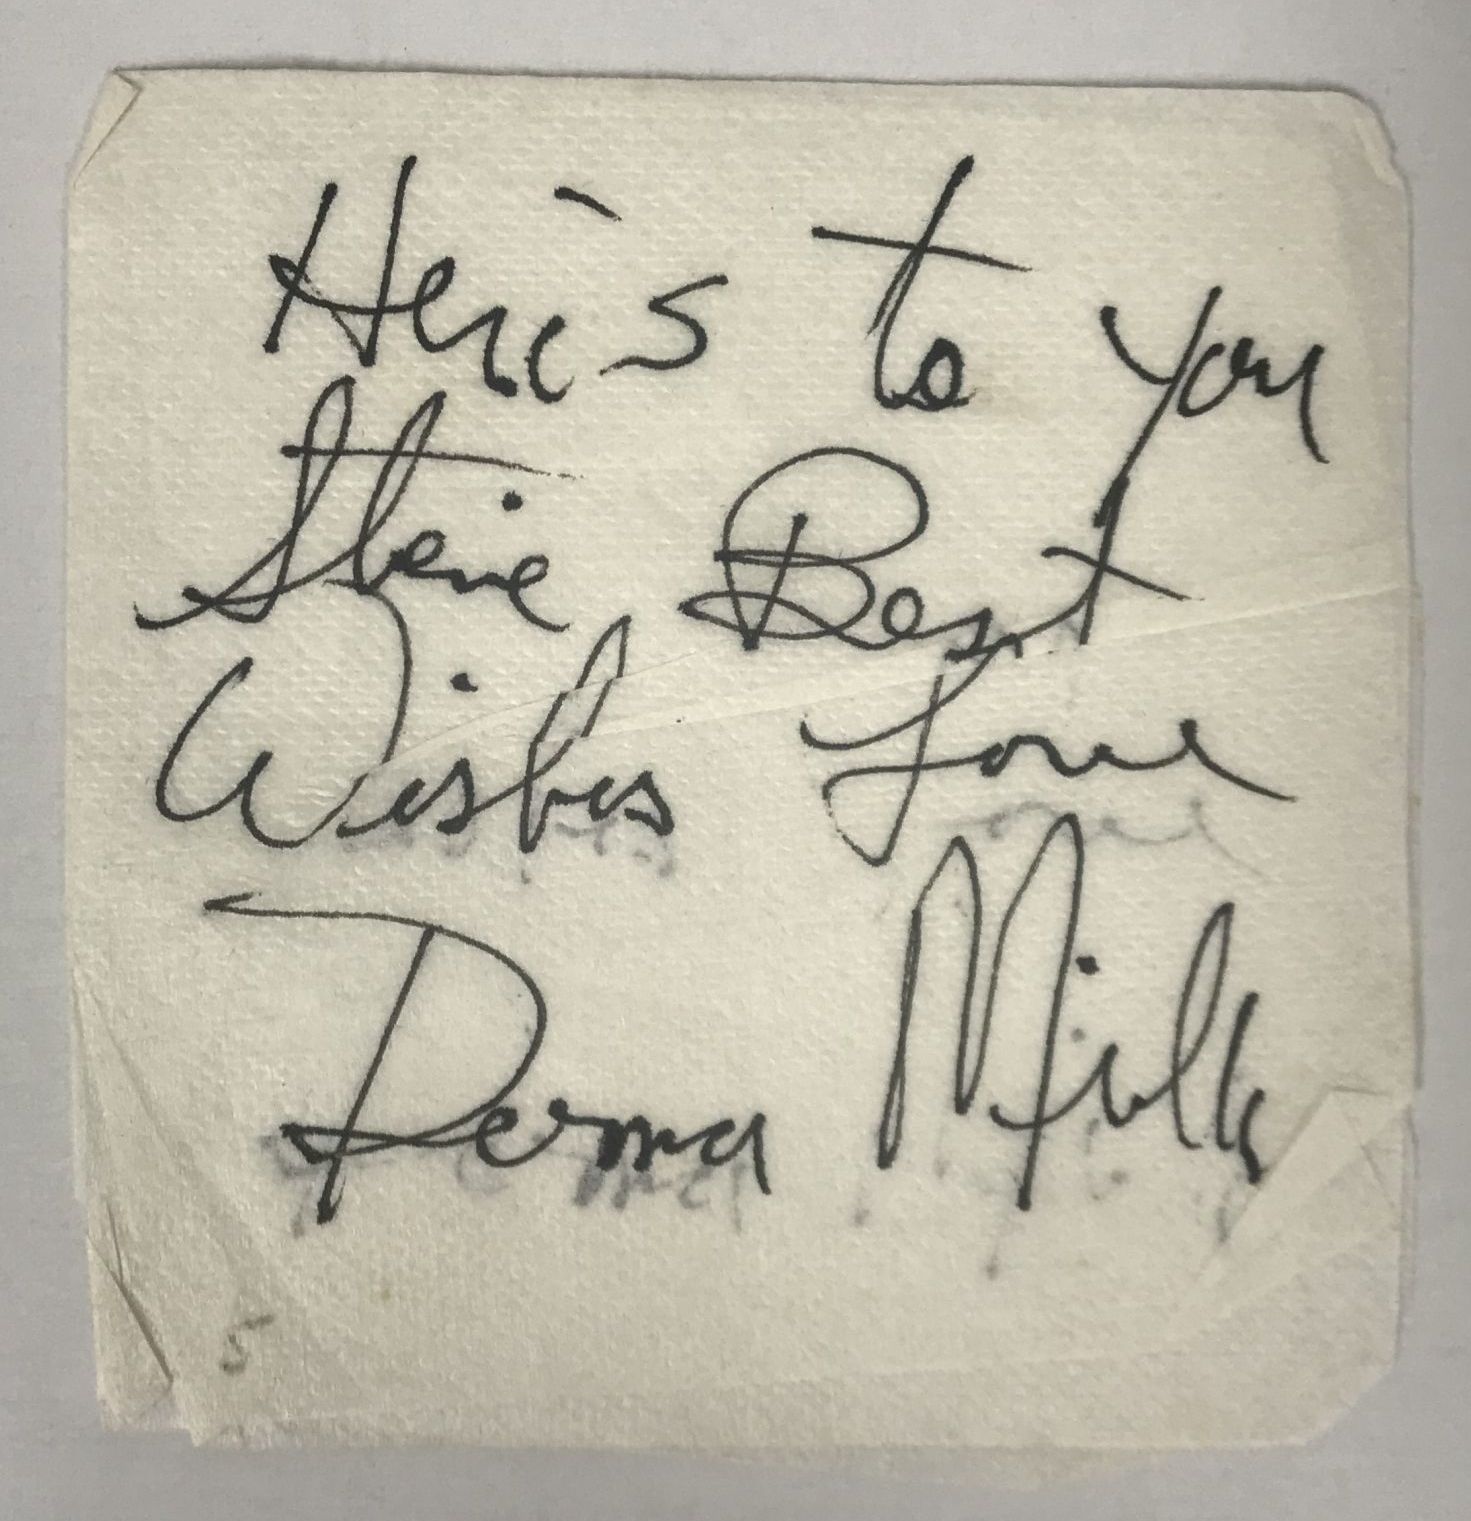 Here's to you
Steve Best
Wishes Love
Derma Milk
5